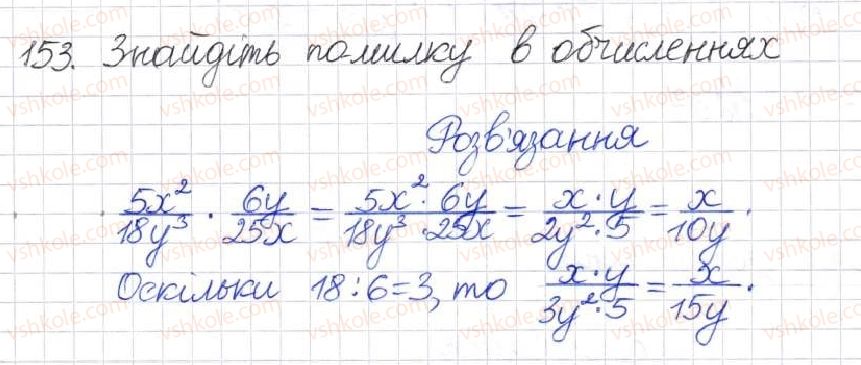 153. Знайдіть помилку в обчисленнях
Розв'язання
5x²/18y³ · 6y/25x = 5x² · 6y/18y³ · 25x = x · y/2y² · 5 = x/10y.
Оскільки 18 : 6 = 3, то x · y/3y² · 5 = x/15y.